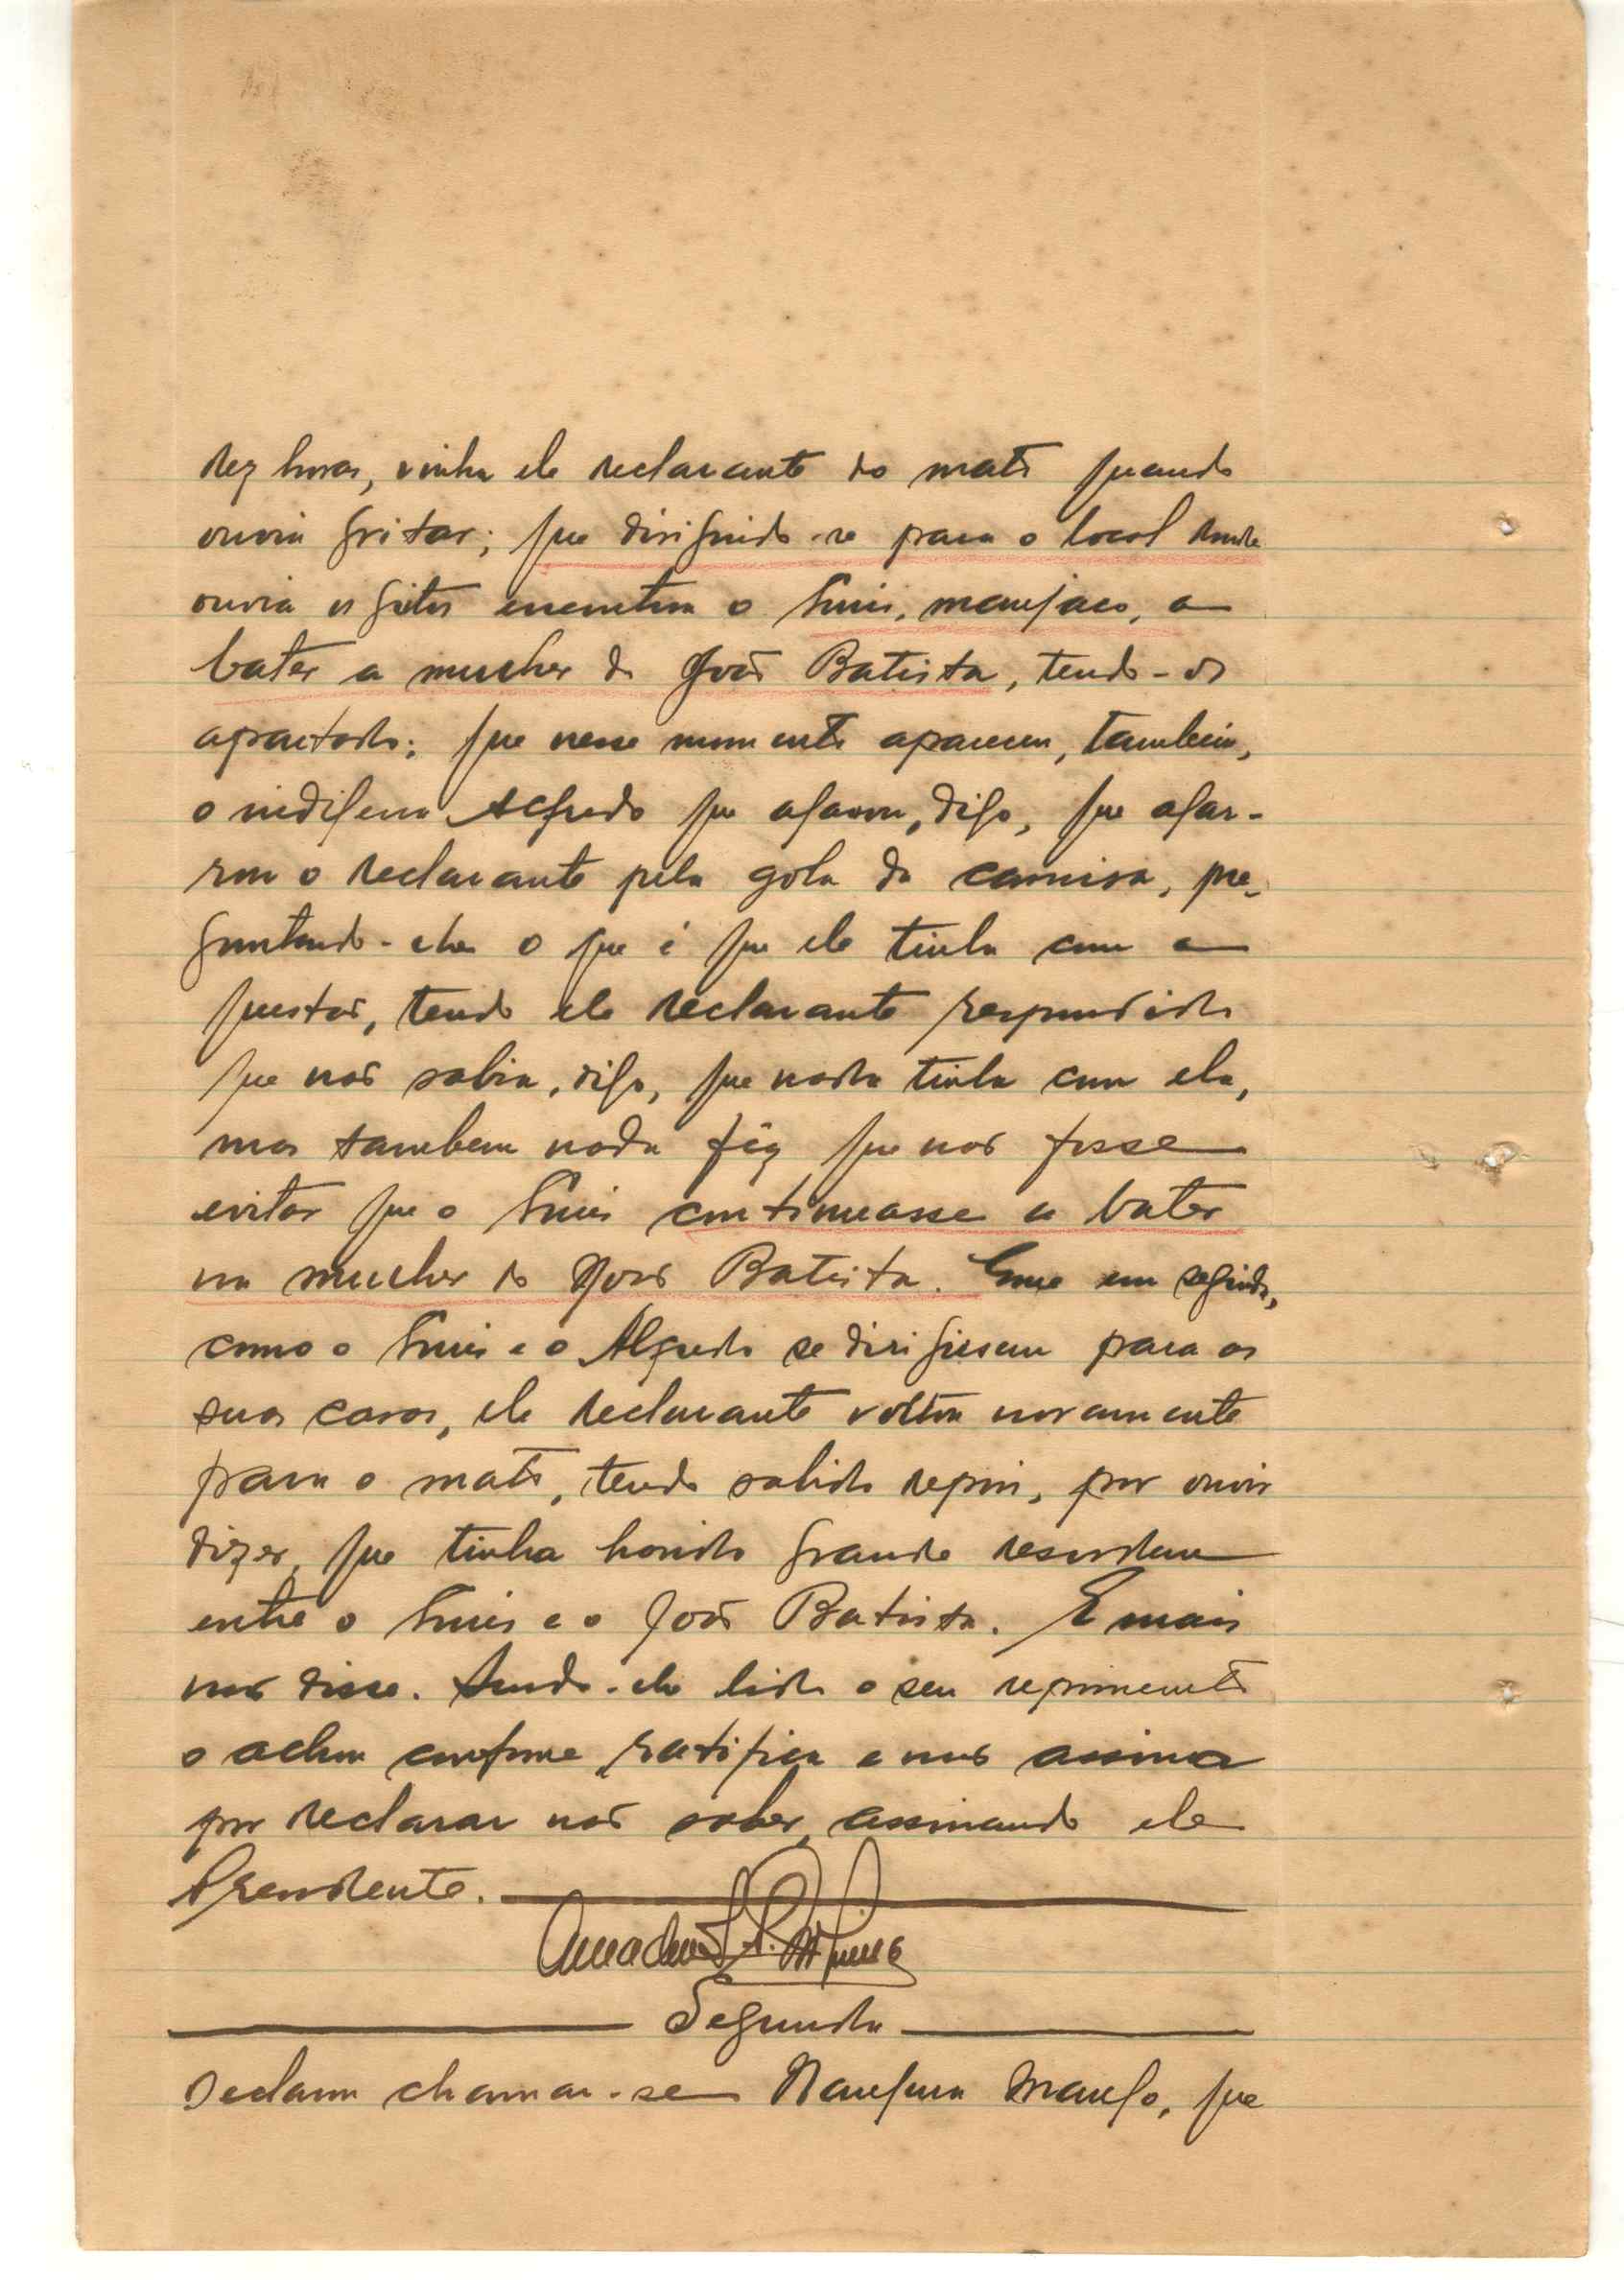 dez horas, vinha ele declarante do mato quando
ouviu gritar; que dirigindo-se para o local donde
ouvia os gritos encontrou o Luis, manjaco, a
bater a mulher do João Batista, tendo-os
apartado; que nesse momento apareceu, tambem,
o indigena Alfredo que agarou, digo, que agar-
rou o declarante pela gola da camisa, pre-
guntando-lhe o que é que ele tinha com a
questão, tendo ele declarante respondido
que não sabia, digo, que nada tinha com ela,
mas tambem nada fêz que não fosse
evitar que o Luis continuasse a bater
na mulher do João Batista. Que em seguida,
como o Luis e o Alfredo se dirigissem para as
suas casas, ele declarante voltou novamente
para o mato, tendo sabido depois, por ouvir
dizer, que tinha havido grande desordem
entre o Luis e o João Batista. E mais
não disse. Sendo-lhe lido o seu depoimento
o achou conforme, ratifica e não assina
por declarar não saber, assinando ele
Presidente.
Segunda
Declarou chamar-se Mango, que